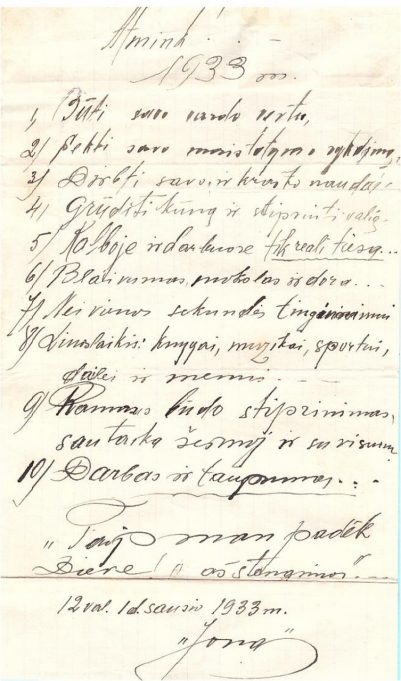 Atmink!
1933 m.
1) Būti savo vardo vertu,
2) Sekti savo
3) Dirbti savo ir krašto naudai...
4) Grūdinti kūną ir stiprinti valią
5) Kalboje ir darbuose tik reali tiesa...
6) Blaivumas, mokslas ir dora...
7) Nei vienos sekundės tinginiavimui
8) Linoslaikis: knygai, muzikai, sportui,
dailei ir menui...
9) Ramaus būdo stiprinimas,
santaika šeimoj ir su visais
10) Darbas ir taupumas...
„Taip man padėk
Dieve!
12 val. 1 d. sausio 1933 m.
„Jona"